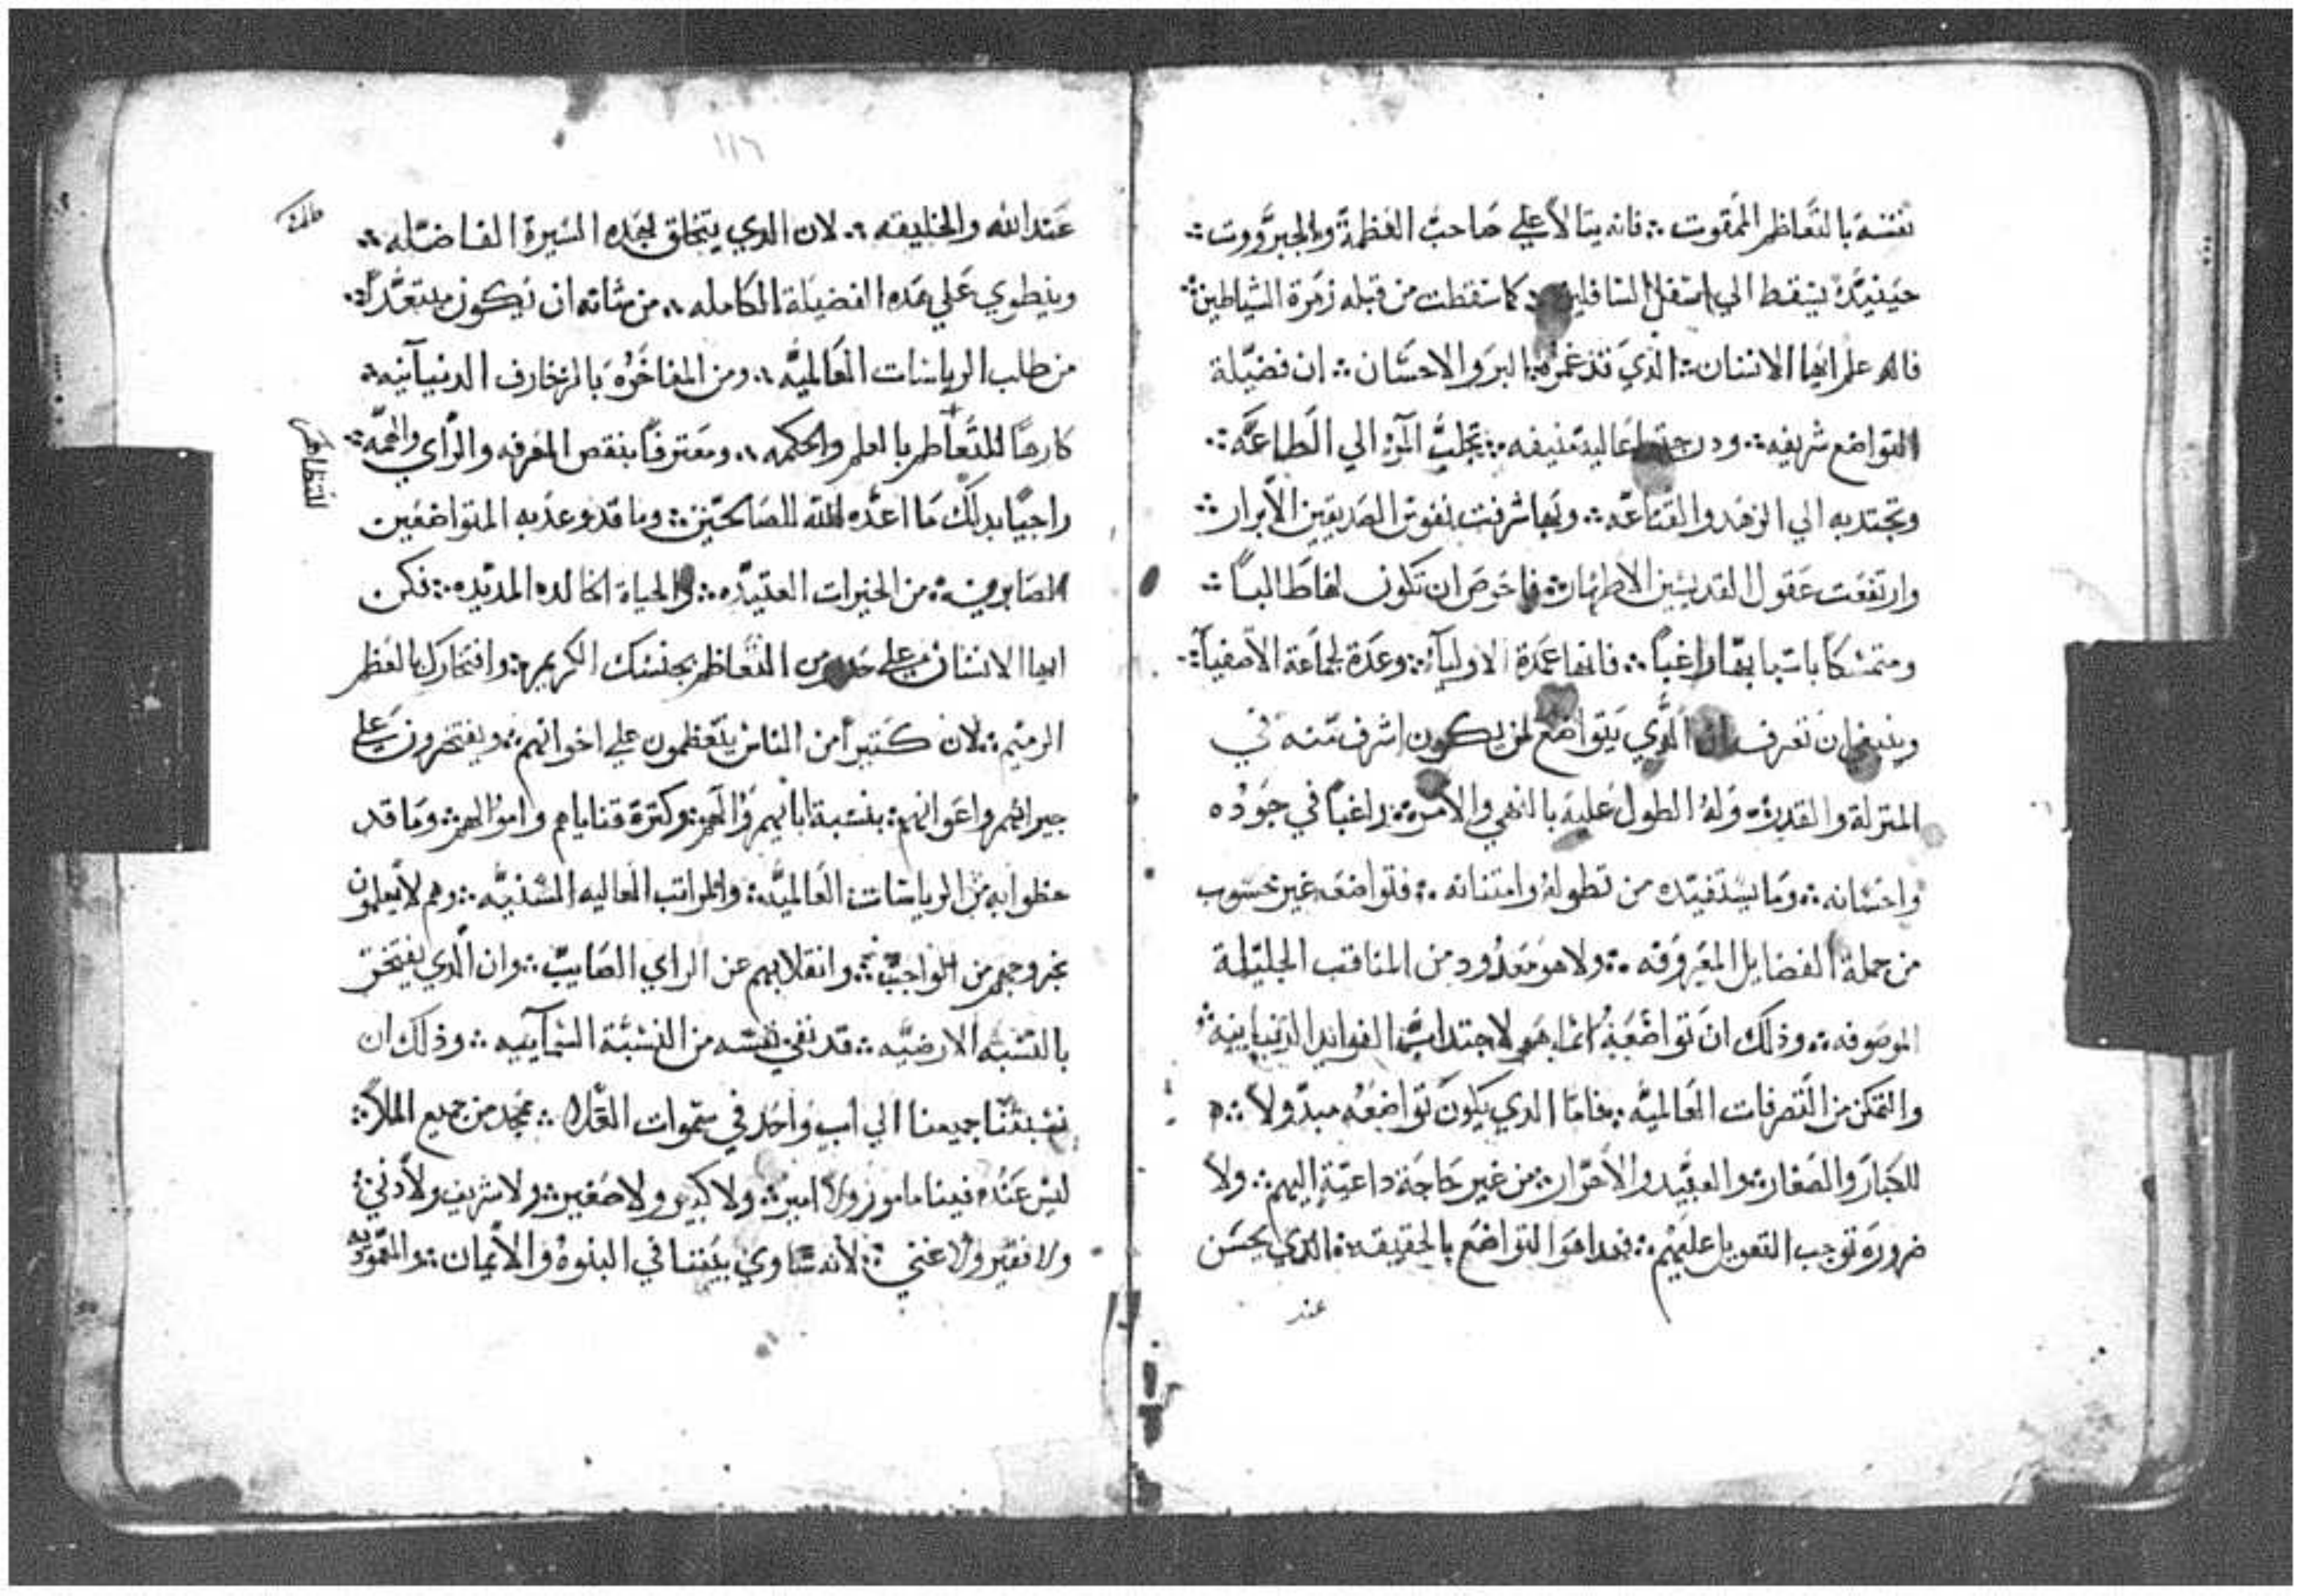 نفسه بالتعاظم الممقوت ܀ فانه يتالا علي صاحب العظمة والجبروت ܀
حينيذ يسقط الي اسفل السافلين ܀ كما سقطت من قبله زمرة الشياطين ܀
فاله علم ايها الانسان ܀ الذي قد غمره البر والاحسان ܀ ان فضيلة
التواضع شريفه ܀ ودرجتها عالية منيفه ܀ تجلب المرؤ الي الطاعه ܀
وتجتدبه الي الزهد والقناعه ܀ وبها شرفت نفوس الصديقين الابرار ܀
وارتفعت عقول القديسين الاطهار ܀ فاحرص ان تكون لها طالباً ܀
ومتمسكاً باسبابها راغباً ܀ فانها عمدة الاوليآ ܀ وعدة لجماعة الاصفيآ ܀
وينبغي ان تعرف ان الذي يتواضع لمن يكون اشرف منه في
المنزلة والقدره ܀ وله الطول عليه بالنهي والامره ܀ راغباً في جوده
واحسانه ܀ وما يستفيده من تطوله وامتنانه ܀ فتواضعه غير محسوب
من جملة الفضايل المعروفه ܀ ولا هو معدود من المناقب الجليلة
الموصوفه ܀ وذلك ان تواضعه انما هو لاجتداب الفوايد الدنياينية ܀
والتمكن من التصرفات العالميه ܀ فاما الدي يكون تواضعه مبدولاً ܀
للكبار والصغار ܀ والعبيد والاحرار ܀ من غير حاجة داعية اليهم ܀ ولا
ضروره توجب التعويل عليهم ܀ فهدا هو التواضع بالحقيقه ܀ الذي يحسن
عند
١١٦
عند الله والخليقه ܀ لان الدي يتخلق بهده السيرة الفاضله ܀
وينطوي علي هده الفضيلة الكامله ܀ من شانه ان يكون مبتعداً ܀
من طلب الرياسات العالميه ܀ ومن المفاخره بالزخارف الدنيآنيه ܀
كارهاً للتعاظم بالعلم والحكمه ܀ ومعترفاً بنقص المعرفه والراي والهمه ܀
للتظاهر
راجياً بدلك ما اعده الله للصالحين ܀ وما قد وعد به المتواضعين
الصابرين ܀ من الخيرات العتيده ܀ والحياة الخالده المديده ܀ فكن
ايها الانسان علي حدر من التعاظم بجنسك الكريم ܀ وافتخارك بالعظم
الرميم ܀ لان كتيراً من الناس يتعظمون علي اخوانهم ܀ ويفتخرون علي
جيرانهم واعوانهم ܀ بنسبة ابايهم والهم ܀ وكترة قناياهم واموالهم ܀ وما قد
حظوا به من الرياسات العالميه ܀ والمراتب العاليه السنيه ܀ وهم لا يعلمون
بخروجهم من الواجب ܀ وانقلابهم عن الراي الصايب ܀ وان الدي يفتخر
بالنسبه الارضيه ܀ قد نفي نفسه من النسبة السمآييه ܀ وذلك ان
نسبتنا جميعنا الي اب واحد في سموات العلا ܀ ممجد من جميع الملا ܀
ليس عنده فينا مامور ولا امير ܀ ولا كبير ولا صغير ܀ ولا شريف ولا دني ܀
ولا فقير ولا غني ܀ لانه ساوي بيننا في البنوه والايمان ܀ والمعموديه